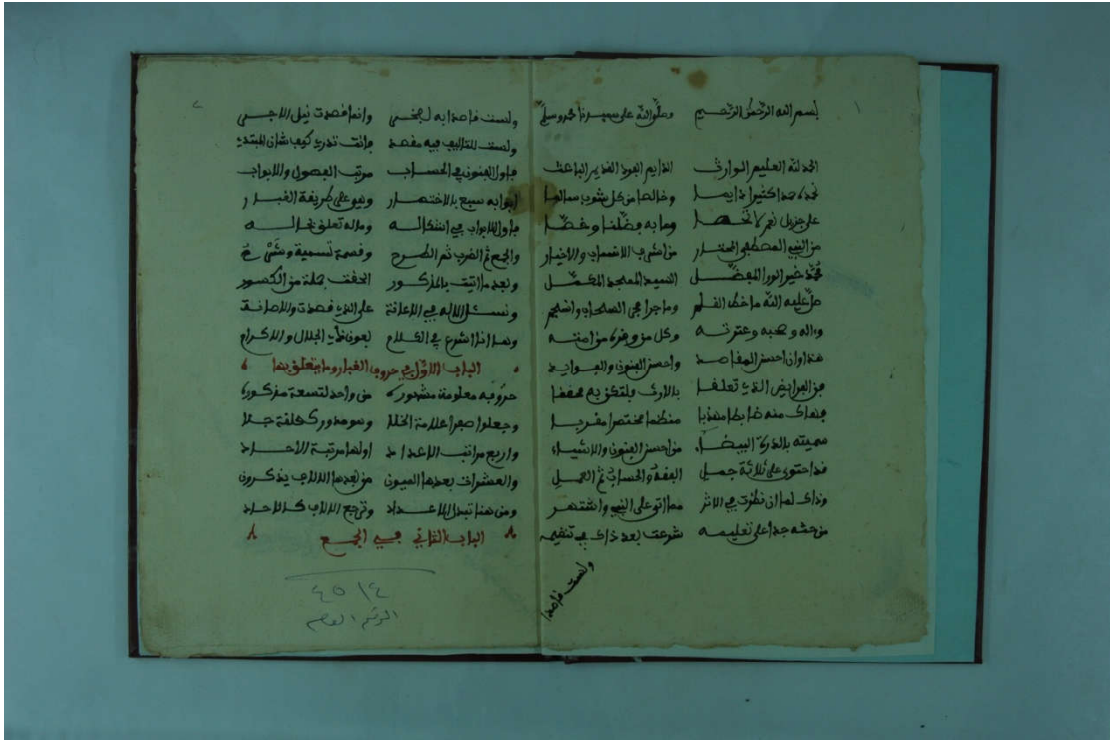 ١
بسم الله الرحمن الرحيم وصلى الله على سيدنا محمد وسلم
الحمد لله العليم الوارث الدايم الفرد القديم الباعث
نحمده حمدا كثيرا دايما وخالصا من كل شوب سالما
على جزيل نعم لا تحصا وما به فضلنا وخصا
من النبي المصطفى المختار من اشرف الانساب والاخيار
محمد خير الورا المفضل السيد الممجد المكمل
صلى عليه الله ما خط القلم وما جرا مجى السحاب وانسجم
واله وصحبه وعترته وكل من وقره من امته
هذا وان احسن المقاصد واحسن الفنون والفوايد
فن الفرايض الذي تعلقا بالارث ولتكن به محققا
فهاك منه ضابطا مهذبا منظما مختصرا مقربا
سميته بالدرة البيضاء من احسن الفنون والاشياء
قد احتوى على ثلاثة جمل الفقه والحساب ثم العمل
وذاك لما ان نظرت في الاثر مما اتى على النبي واشتهر
من حثه جدا على تعليمه شرعت بعد ذاك في تنظيمه
ولست قاصدا
٢
ولست قاصدا به لفخر وانما قصدت نيل الاجر
ولست للتاليف فيه مفصد وانت تدري كيف شان المبتدي
فاول الفنون في الحساب مرتب الفصول والابواب
ابوابه سبع بالاختصار وهو على طريقة الغبار
فاول الابواب في اشكاله وما له تعلق بحاله
والجمع ثم الضرب ثم الطرح وقسمة تسمية
وبعد ما اتيت بالمذكور الحقت جملة من الكسور
ونسئل الاله في الاعانة على الذي قصدت والاصانة
وها انا اشرع في الكلام بعون ذي الجلال والاكرام
الباب الاول في حروف الغبار وما يتعلق بها
حروفه معلومة مشهوره من واحد لتسعة مذكوره
وجعلوا صفرا علامة الخلا وهو مدور كحلقة جلا
واربع مراتب الاعداد اولها مرتبة الاحاد
والعشرات بعدها الميون من بعدها الالاف يذكرون
ومن هنا تبدل الاعداد وترجع الالاف كالاحاد
الباب الثاني في الجمع
٤٥١٤
الرقم العام